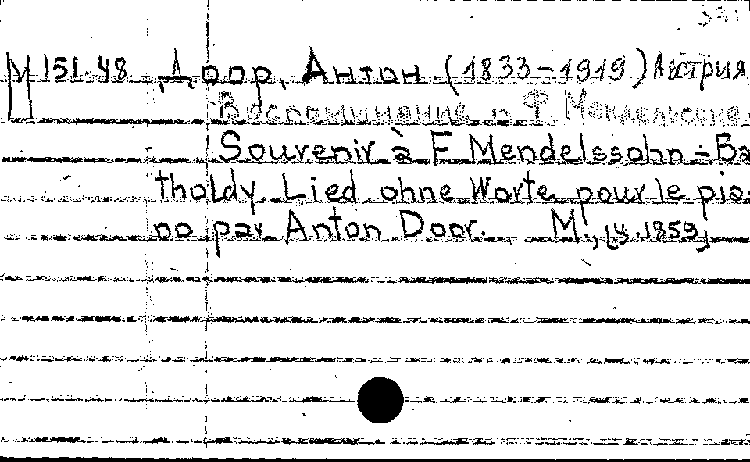 М 151.48 Доор, Антон (1833-1919) Австрия
Воспоминание о Ф. Мендельсоне
Souvenir à F Mendelssohn-Ba
tholdy. Lied ohne Worte pour le pia-
no par Anton Door. M., 1859